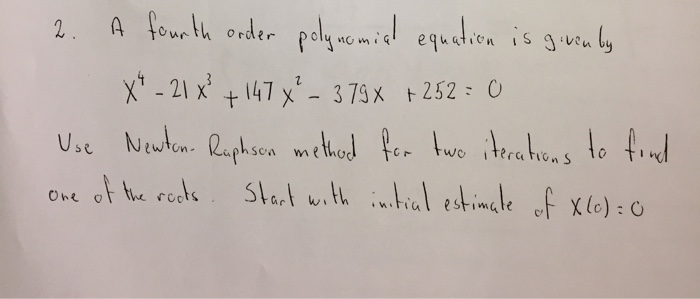 2. A fourth order polynomial equation is given by
x⁴ - 21x³ + 147x² - 379x + 252 = 0
Use Newton-Raphson method for two iterations to find
one of the roots. Start with initial estimate of x(0) = 0